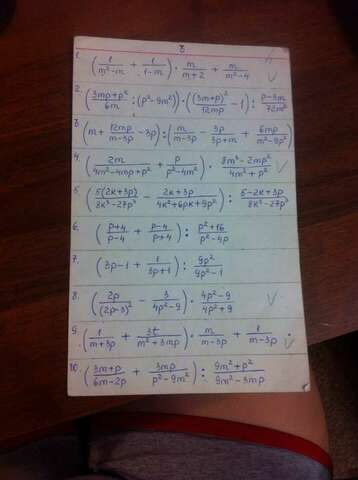 8
1. (1/(m²-m) + 1/(1-m)) · m/(m+2) + m/(m²-4)
2. ((3mp+p²)/6m : (p²-9m²)) · ((3m+p)²/12mp - 1) : (p-3m)/72m²
3. (m + 12mp/(m-3p) - 3p) : (m/(m-3p) - 3p/(3p+m) + 6mp/(m²-9p²))
4. (2m/(4m²-4mp+p²) + p/(p²-4m²)) · (8m³-2mp²)/(4m²+p²)
5. (5(2k+3p)/(8k³-27p³) - (2k+3p)/(4k²+6pk+9p²)) : (5-2k+3p)/(8k³-27p³)
6. ((p+4)/(p-4) + (p-4)/(p+4)) : (p²+16)/(p²-4p)
7. (3p-1 + 1/(3p+1)) : 9p²/(9p²-1)
8. (2p/(2p-3)² - 3/(4p²-9)) · (4p²-9)/(4p²+9)
9. (1/(m+3p) + 3t/(m²+3mp)) · m/(m-3p) + 1/(m-3p)
10. ((3m+p)/(6m-2p) + 3mp/(p²-9m²)) : (9m²+p²)/(9m²-3mp)